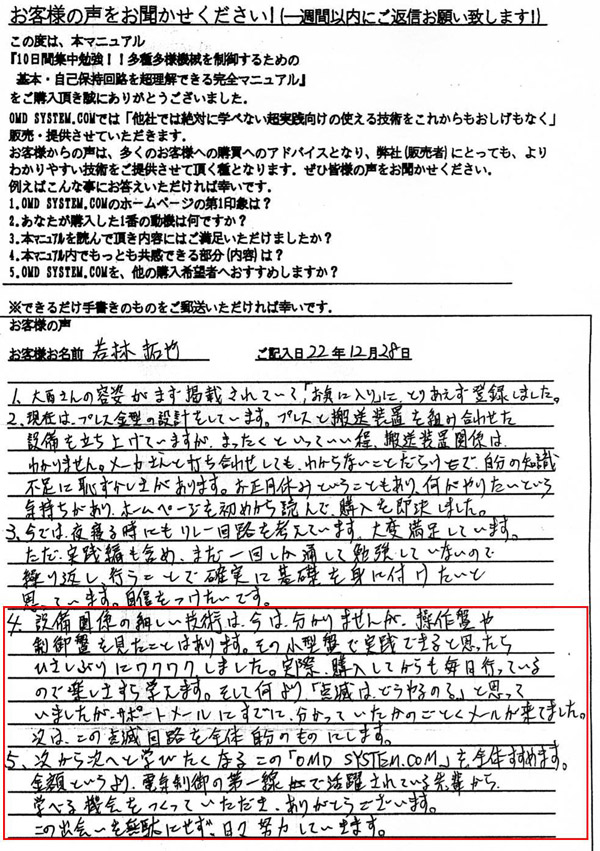 お客様の声をお聞かせください!(一週間以内にご返信お願い致します!)
この度は、本マニュアル
『10日間集中勉強！！多種多様機械を制御するための
基本・自己保持回路を超理解できる完全マニュアル』
をご購入頂き誠にありがとうございました。
OMD SYSTEM.COMでは「他社では絶対に学べない超実践向けの使える技術をこれからもおしげもなく」
販売・提供させていただきます。
お客様からの声は、多くのお客様への購買へのアドバイスとなり、弊社(販売者)にとっても、より
わかりやすい技術をご提供させて頂く種となります。ぜひ皆様の声をお聞かせください。
例えばこんな事にお答えいただければ幸いです。
1.OMD SYSTEM.COMのホームページの第1印象は？
2.あなたが購入した1番の動機は何ですか？
3.本マニュアルを読んで頂き内容にはご満足いただけましたか？
4.本マニュアル内でもっとも共感できる部分(内容)は？
5.OMD SYSTEM.COMを、他の購入希望者へおすすめしますか？
※できるだけ手書きのものをご郵送いただければ幸いです。
お客様の声
お客様お名前 若林 拓也 ご記入日 22年12月28日
1. 大西さんの容姿がまず掲載されていて、「お気に入り」に、とりあえず登録しました。
2. 現在は、プレス金型の設計をしています。プレスと搬送装置を組み合わせた
設備を立ち上げていますが、まったくといっていい程、搬送装置関係は、
わかりません。メーカさんと打ち合わせしても、わからないことだらけで、自分の知識
不足に恥ずかしさがあります。お正月休みということもあり、何がやりたいという
気持ちがあり、ホームページを初めから読んで、購入を即決しました。
3. 今では、夜寝る時にもリレー回路を考えています。大変満足しています。
ただ、実践編も含め、まだ一回しか通して勉強していないので
繰り返し行うことで確実に基礎を身に付けたいと
思っています。自信をつけたいです。
4. 設備関係の細しい技術は、今は分かりませんが、操作盤や
制御盤を見たことはあります。その小型盤で実践できると思ったら
ひさしぶりにワクワクしました。実際、購入してからも毎日行っている
ので楽しさすら覚えます。そして何より、「点滅は、どうやるの？」と思って
いましたが、サポートメールにすでに、分かっていたかのごとくメールが来てました。
次は、この点滅回路を全体自分のものにします。
5. 次から次へと学びたくなるこの「OMD SYSTEM.COM」を全体すすめます。
金額というより、電気制御の第一線で活躍されている先輩から、
学べる機会をつくっていただき、ありがとうございます。
この出会いを無駄にせず、日々努力していきます。